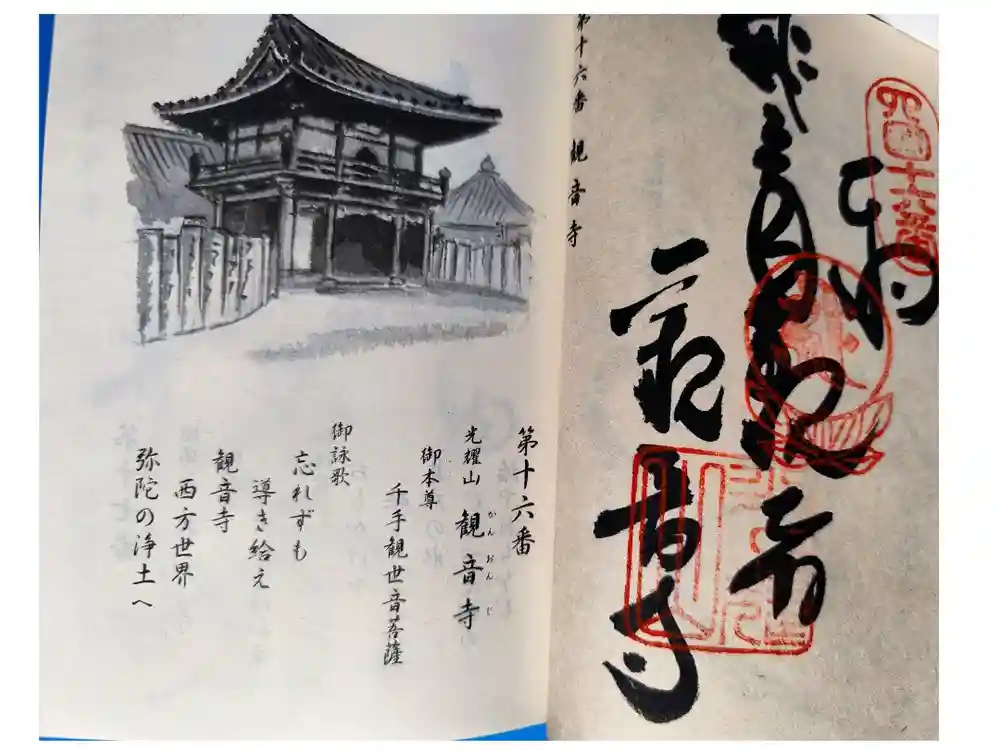 第十六番
光耀山 観音寺
かんおんじ
御本尊
千手観世音菩薩
御詠歌
忘れずも
導き給え
観音寺
西方世界
弥陀の浄土へ
第十六番 観音寺
四国十六番
奉納
観音寺